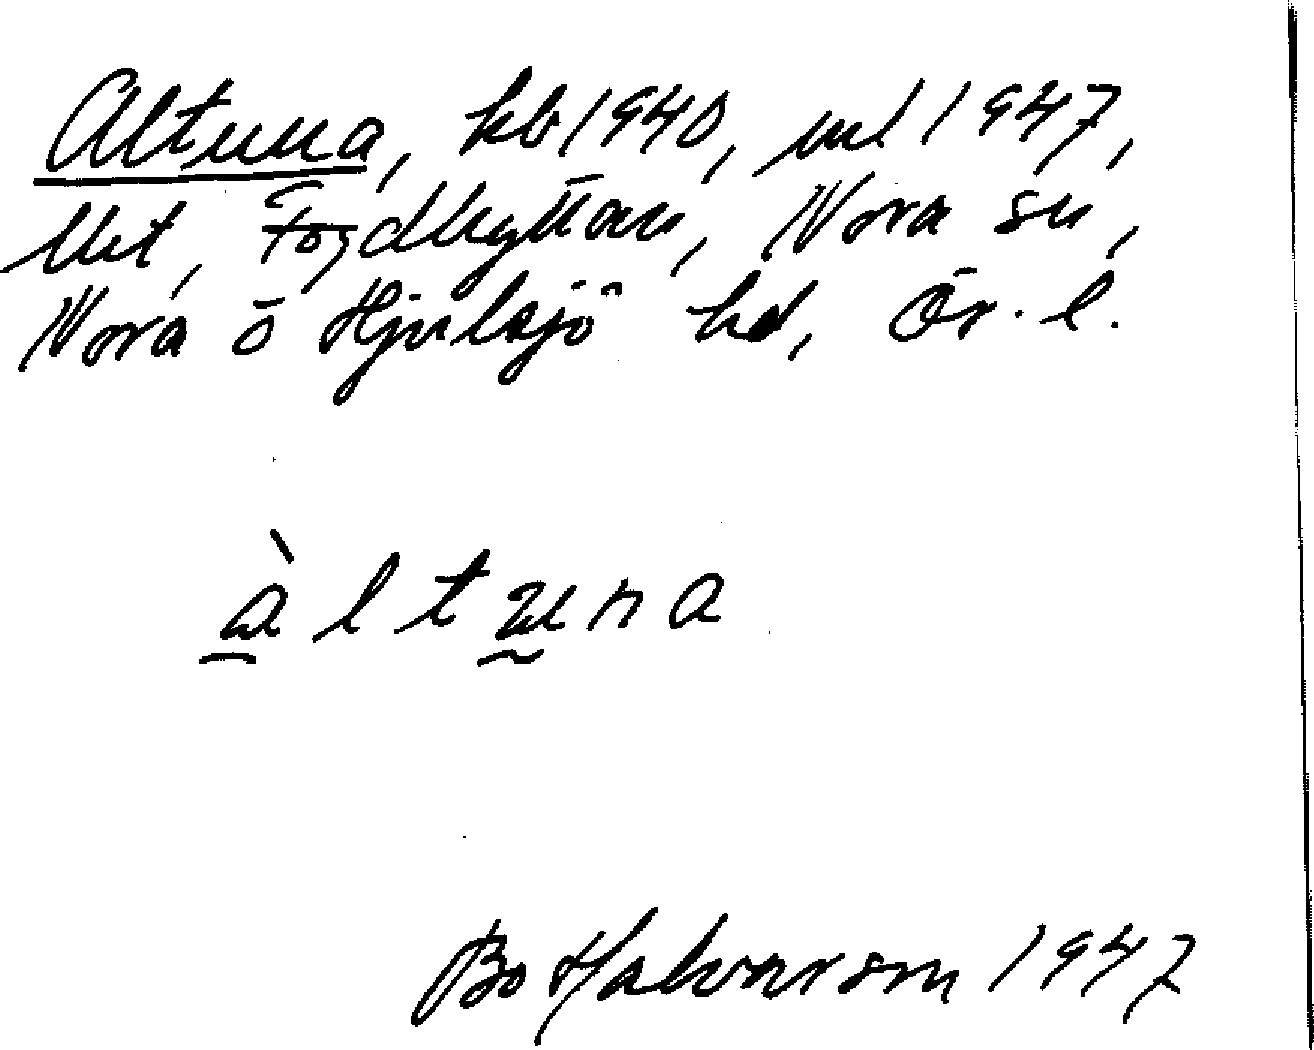 Altuna, kb 1940, ml 1947,
lht, Fogdhyttan, Nora sn,
Nora o Hjulsjö hd, Ör. l.
àltuna
Bo Halvarson 1947